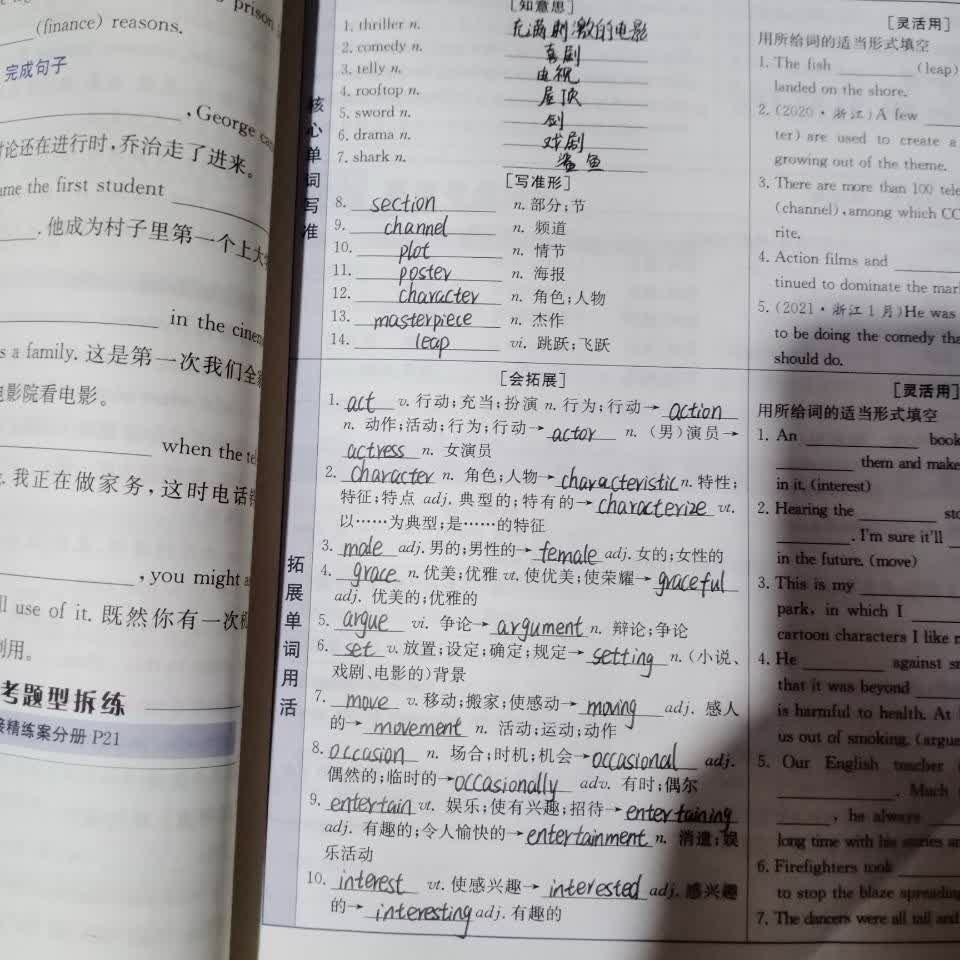 prison
(finance) reasons.
完成句子
, George
讨论还在进行时,乔治走了进来。
the first student
. 他成为村子里第一个上大
in the
s a family. 这是第一次我们全
电影院看电影。
when the
. 我正在做家务,这时电话
, you might
use of it. 既然你有一次
利用。
考题型拆练
精练案分册 P21
核心单词写准
[知意思]
1. thriller n. 充满刺激的电影
2. comedy n. 喜剧
3. telly n. 电视
4. rooftop n. 屋顶
5. sword n. 剑
6. drama n. 戏剧
7. shark n. 鲨鱼
[写准形]
8. section n. 部分;节
9. channel n. 频道
10. plot n. 情节
11. poster n. 海报
12. character n. 角色;人物
13. masterpiece n. 杰作
14. leap vi. 跳跃;飞跃
拓展单词用活
[会拓展]
1. act v. 行动;充当;扮演 n. 行为;行动→ action
n. 动作;活动;行为;行动→ actor n. (男)演员→
actress n. 女演员
2. character n. 角色;人物→ characteristic n. 特性;
特征;特点 adj. 典型的;特有的→ characterize vt.
以……为典型;是……的特征
3. male adj. 男的;男性的→ female adj. 女的;女性的
4. grace n. 优美;优雅 vt. 使优美;使荣耀→ graceful
adj. 优美的;优雅的
5. argue vi. 争论→ argument n. 辩论;争论
6. set v. 放置;设定;确定;规定→ setting n. (小说、
戏剧、电影的)背景
7. move v. 移动;搬家;使感动→ moving adj. 感人
的→ movement n. 活动;运动;动作
8. occasion n. 场合;时机;机会→ occasional adj.
偶然的;临时的→ occasionally adv. 有时;偶尔
9. entertain vt. 娱乐;使有兴趣;招待→ entertaining
adj. 有趣的;令人愉快的→ entertainment n. 消遣;娱
乐活动
10. interest vt. 使感兴趣→ interested adj. 感兴趣
的→ interesting adj. 有趣的
[灵活用]
用所给词的适当形式填空
1. The fish (leap)
landed on the shore.
2. (2020·浙江)A few
ter) are used to create a
growing out of the theme.
3. There are more than 100
(channel), among which
rite.
4. Action films and
tinued to dominate the
5. (2021·浙江1月)He was
to be doing the comedy
should do.
[灵活用]
用所给词的适当形式填空
1. An book
them and make
in it. (interest)
2. Hearing the
. I'm sure it'll
in the future. (move)
3. This is my
park, in which I
cartoon characters I like
4. He against
that it was beyond
is harmful to health. At
us out of smoking. (argue
5. Our English teacher
. Much
, he always
long time with his stories
6. Firefighters took
to stop the blaze spreading
7. The dancers were all tall and